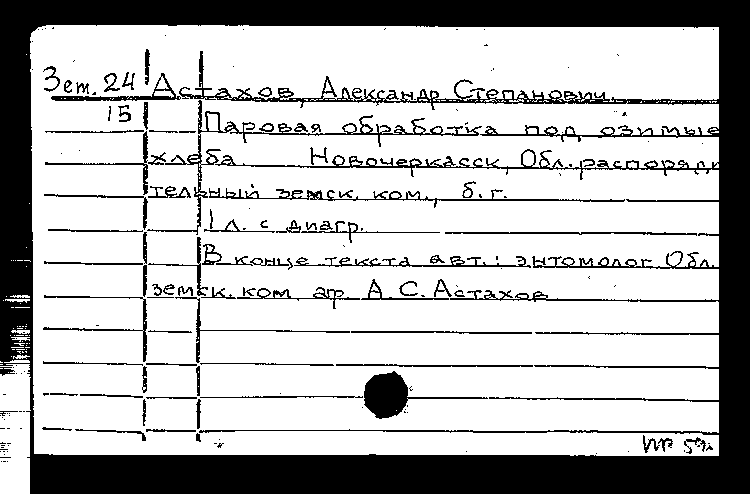 Зет. 24 Астахов, Александр Степанович.
15
Паровая обработка под озимые
хлеба Новочеркасск, Обл. распоряди
тельный земск. ком., б. г.
1 л. с диагр.
В конце текста авт.: энтомолог Обл.
земск. ком. агр. А. С. Астахов